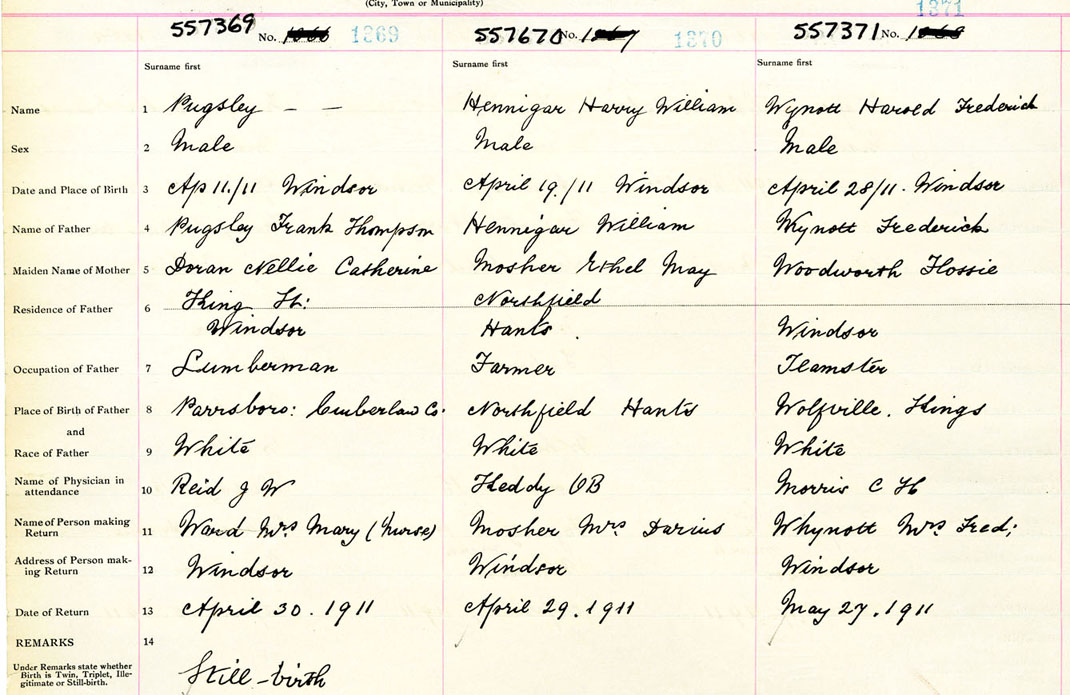 (City, Town or Municipality)
1371
557369 No. 1369 557670 No. 1370 557371 No.
Surname first Surname first Surname first
Name 1 Pugsley — — Hennigar Harry William Wynott Harold Frederick
Sex 2 Male Male Male
Date and Place of Birth 3 Ap 11./11 Windsor April 19./11 Windsor April 28/11. Windsor
Name of Father 4 Pugsley Frank Thompson Hennigar William Wynott Frederick
Maiden Name of Mother 5 Doran Nellie Catherine Mosher Ethel May Woodworth Flossie
Residence of Father 6 King St: Northfield
Windsor Hants. Windsor
Occupation of Father 7 Lumberman Farmer Teamster
Place of Birth of Father 8 Parrsboro: Cumberland Co. Northfield Hants Wolfville. Kings
and
Race of Father 9 White White White
Name of Physician in
attendance 10 Reid J W Keddy OB Morris C H
Name of Person making
Return 11 Ward Mrs Mary (Nurse) Mosher Mrs Darius Whynott Mrs Fred;
Address of Person mak-
ing Return 12 Windsor Windsor Windsor
Date of Return 13 April 30. 1911 April 29. 1911 May 27. 1911
REMARKS 14
Under Remarks state whether
Birth is Twin, Triplet, Ille-
gitimate or Still-birth.
Still-birth